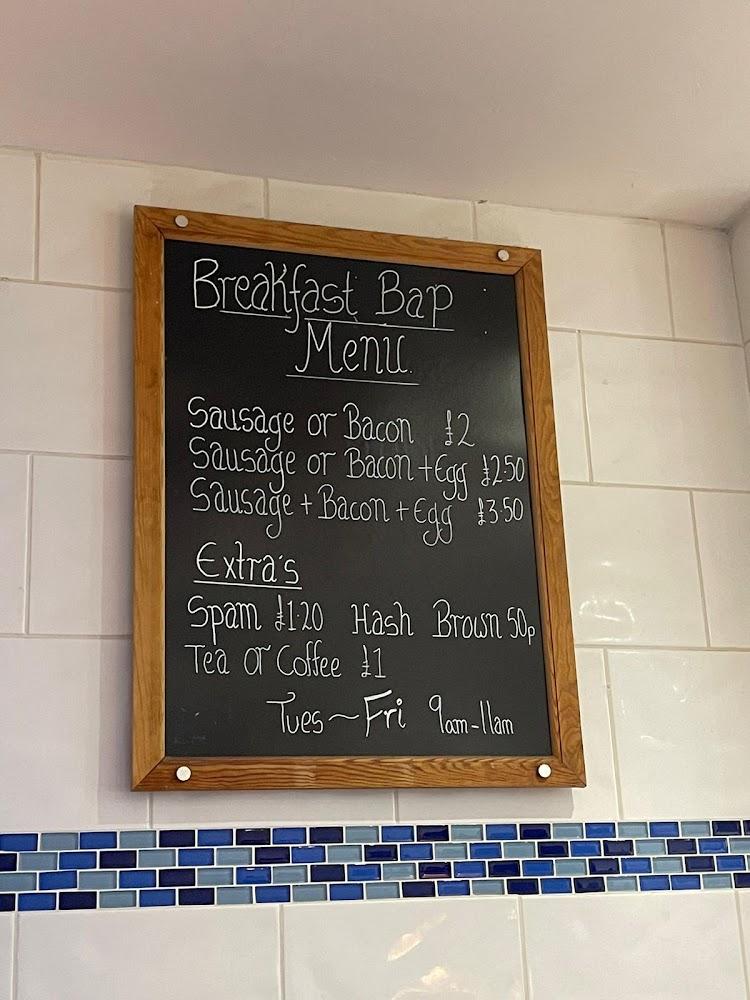 Breakfast Bap
Menu.
Sausage or Bacon £2
Sausage or Bacon + Egg £2.50
Sausage + Bacon + Egg £3.50
Extra's
Spam £1.20 Hash Brown 50p
Tea or Coffee £1
Tues ~ Fri 9am - 11am